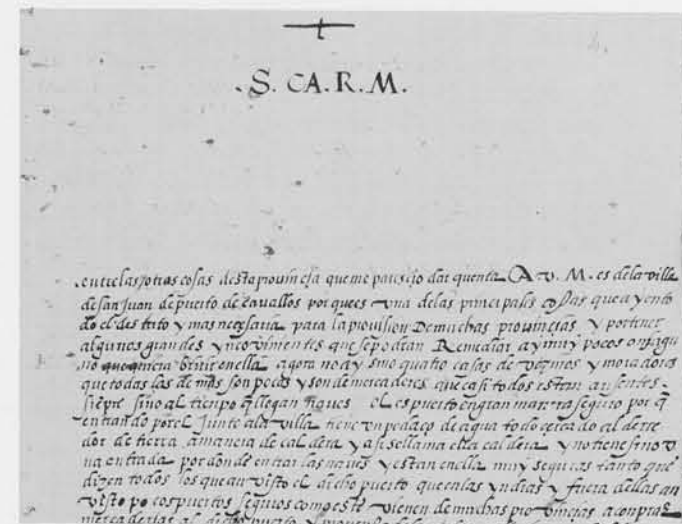 .S. CA. R. M.
.entrelas otras cosas desta provincia que me parescio dar quenta A v. M. es dela villa
de san Juan de puerto de cavallos por que es una delas principales cosas que ay en to
do el distrito y mas necesaria para la provision De muchas provincias y por tener
algunos grandes ynconvinientes que se podian Remediar ay muy pocos o ninguno
que quiera bivir en ella agora no ay sino quatro casas de vezinos y moradores
que todas las demas son pocas y son de mercaderes que casi todos estan ausentes.
sienpre sino al tienpo q llegan navos el es puerto en gran manera seguro por q
entrando por el Junto ala villa tiene un pedaço de agua todo cercado al derre
dor de tierra a manera de caldera y asi se llama el la caldera y no tiene sino u
na entrada por donde entran las naves y estan en ella muy seguras tanto que
dizen todos los que an visto el dicho puerto que en las yndias y fuera dellas an
visto pocos puertos seguros como este vienen de muchas provincias a conprar
mercaderias al dicho puerto y